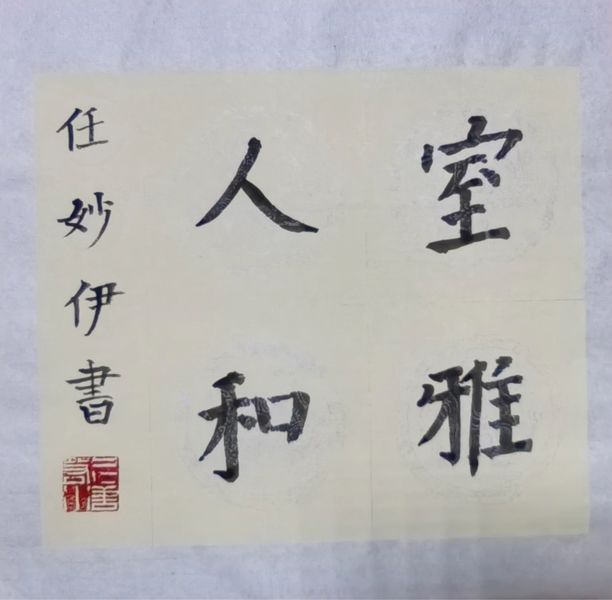 室雅
人和
任妙伊書